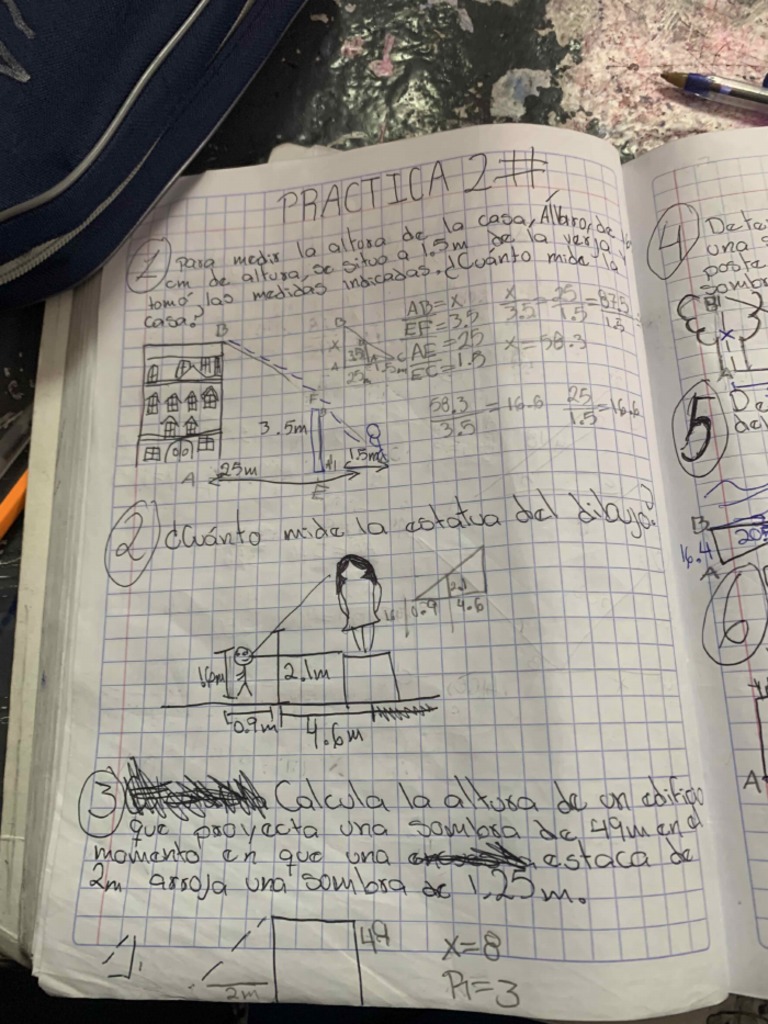 PRACTICA 2 #
1 Para medir la altura de la casa, Álvaro, de
cm de altura, se situo a 1.5m de la verja y
tomó las medidas indicadas. ¿Cuánto mide la
casa?
AB = x
EF = 3.5
AE = 25
EC = 1.5
x/3.5 = 25/1.5 = 87.5/1.5
x = 58.3
58.3/3.5 = 16.6
25/1.5 = 16.6
B
F
3.5m
1.5m
A
25m
E
B
x
A
C
2 ¿Cuánto mide la estatua del dibujo?
2.1
0.9
4.6
2.1m
0.9m
4.6m
3 Calcula la altura de un edificio
que proyecta una sombra de 49m en el
momento en que una estaca de
2m arroja una sombra de 1,25m.
49
2m
x=8
P1=3
4
Dete
una s
poste
sombr
x
5
De
del
B
16.4
A
6
A